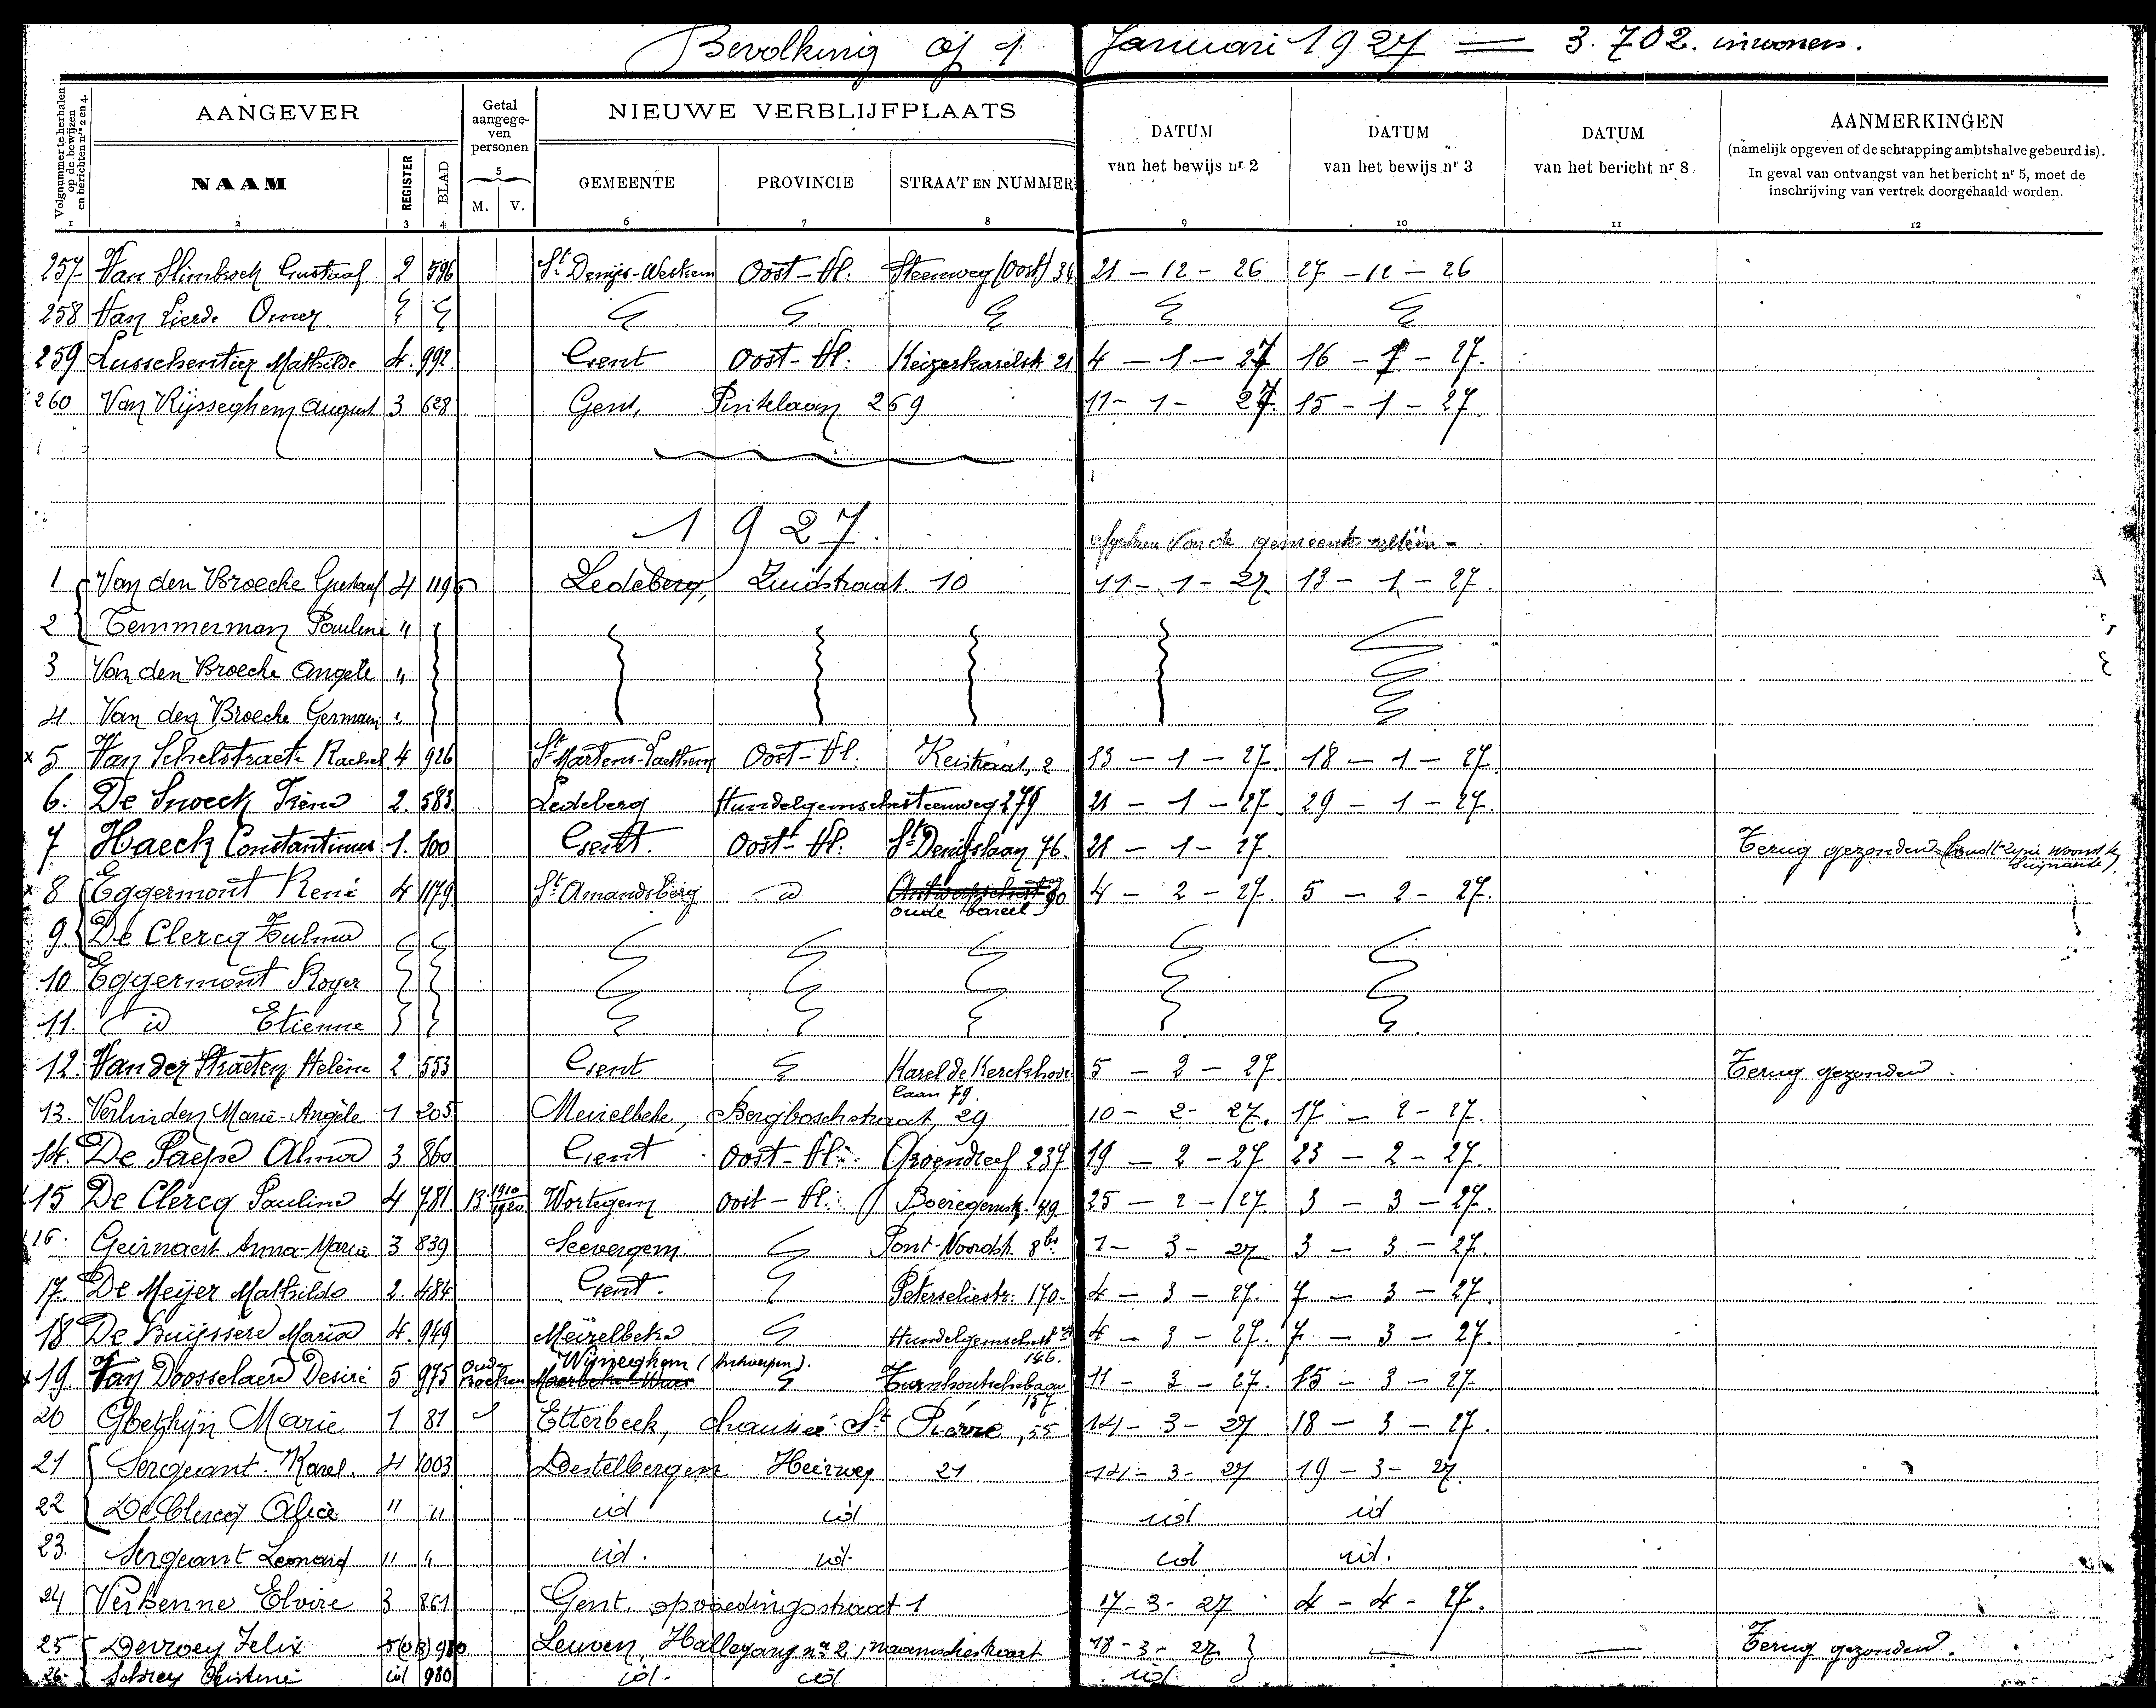 Bevolking op 1 Januari 1927 = 3.702. inwoners.
Volgnummer te herhalen op de bewijzen en berichten nrs 2 en 4.
AANGEVER
Getal aangegeven personen
NIEUWE VERBLIJFPLAATS
DATUM van het bewijs nr 2
DATUM van het bewijs nr 3
DATUM van het bericht nr 8
AANMERKINGEN
(namelijk opgeven of de schrapping ambtshalve gebeurd is).
In geval van ontvangst van het bericht nr 5, moet de inschrijving van vertrek doorgehaald worden.
NAAM REGISTER BLAD 5 M. V. GEMEENTE PROVINCIE STRAAT EN NUMMER
1 2 3 4 6 7 8 9 10 11 12
257 Van Slimbrock Gustaaf 2 596 St Denijs-Westrem Oost-Vl. Steenweg (Oost) 36 21-12-26 27-12-26
258 Van Lierde Omer
259 Lusschentier Mathilde 4. 992. Gent Oost-Vl. Keizerkarelstr 21 4-1-27 16-1-27.
260 Van Rijsseghem August 3 628 Gent, Pintelaan 269 11-1-27. 15-1-27.
1927.
van de gemeente alleen -
1 Van den Broecke Gustaaf 4 1196 Ledeberg, Zuidstraat 10 11-1-27. 13-1-27.
2 Temmerman Pauline "
3 Van den Broecke Angele "
4 Van den Broecke Germain "
x 5 Van Schelstraete Rachel 4 926 St Martens-Laethem Oost-Vl. Keistraat, 2 13-1-27. 18-1-27.
6. De Sweck Irène 2. 583. Ledeberg Hundelgemschesteenweg 279 21-1-27. 29-1-27.
7 Haeck Constantinus 1. 100 Gent. Oost-Vl. St Denijslaan 76. 21-1-27. Terug gezonden
x 8 Eggermont René 4 1179. St Amandsberg id oude bareel 90 4-2-27. 5-2-27.
9. De Clercq Zulma
10 Eggermont Roger
11. id Etienne
12. Van der Straeten Helène 2. 553 Gent Karel de Kerckhove laan 79. 5-2-27. Terug gezonden.
13. Verlinden Marie-Angèle 1 205 Meirelbeke, Bergboschstraat, 29 10-2-27. 17-2-27.
14. De Paepe Alma 3 860 Gent Oost-Vl. Groendreef 237 19-2-27. 23-2-27.
15 De Clercq Pauline 4 781 B. 1910 1920 Wortegem Oost-Vl. Boeregemstr. 49 25-2-27. 3-3-27.
16. Geirnaert Anna-Marie 3 839 Seevergem. Pont-Noordstr. 8bis 1-3-27 3-3-27.
17. De Meijer Mathilde 2. 484 Gent. Peterseliestr. 170. 4-3-27. 7-3-27.
18 De Buijssere Maria 4. 949 Meirelbeke Hundelgemschestw 146. 4-3-27. 7-3-27.
x 19. Van Doosselaere Desiré 5 975 Oude Boeken Wijneghem (Antwerpen). Maerbeke-Waas Turnhoutschebaan 157 11-3-27. 15-3-27.
20 Ghethijn Marie 1 81 Etterbeek, chaussée St Pierre, 55 14-3-27 18-3-27.
21 Sergeant. Karel. 4 1003 Destelbergen Heirweg 21 14-3-27 19-3-27.
22 De Clercq Alice " " id id id id
23. Sergeant Leonard " " id. id. id id.
24 Verkenne Elvire 3 861 Gent. opvoedingsstraat 1 17-3-27 4-4-27.
25 Devroey Felix 5(OB) 980 Leuven, Hallegang no 2, 18-3-27 — — Terug gezonden.
26. Schrey Christine id 980 id. id id.